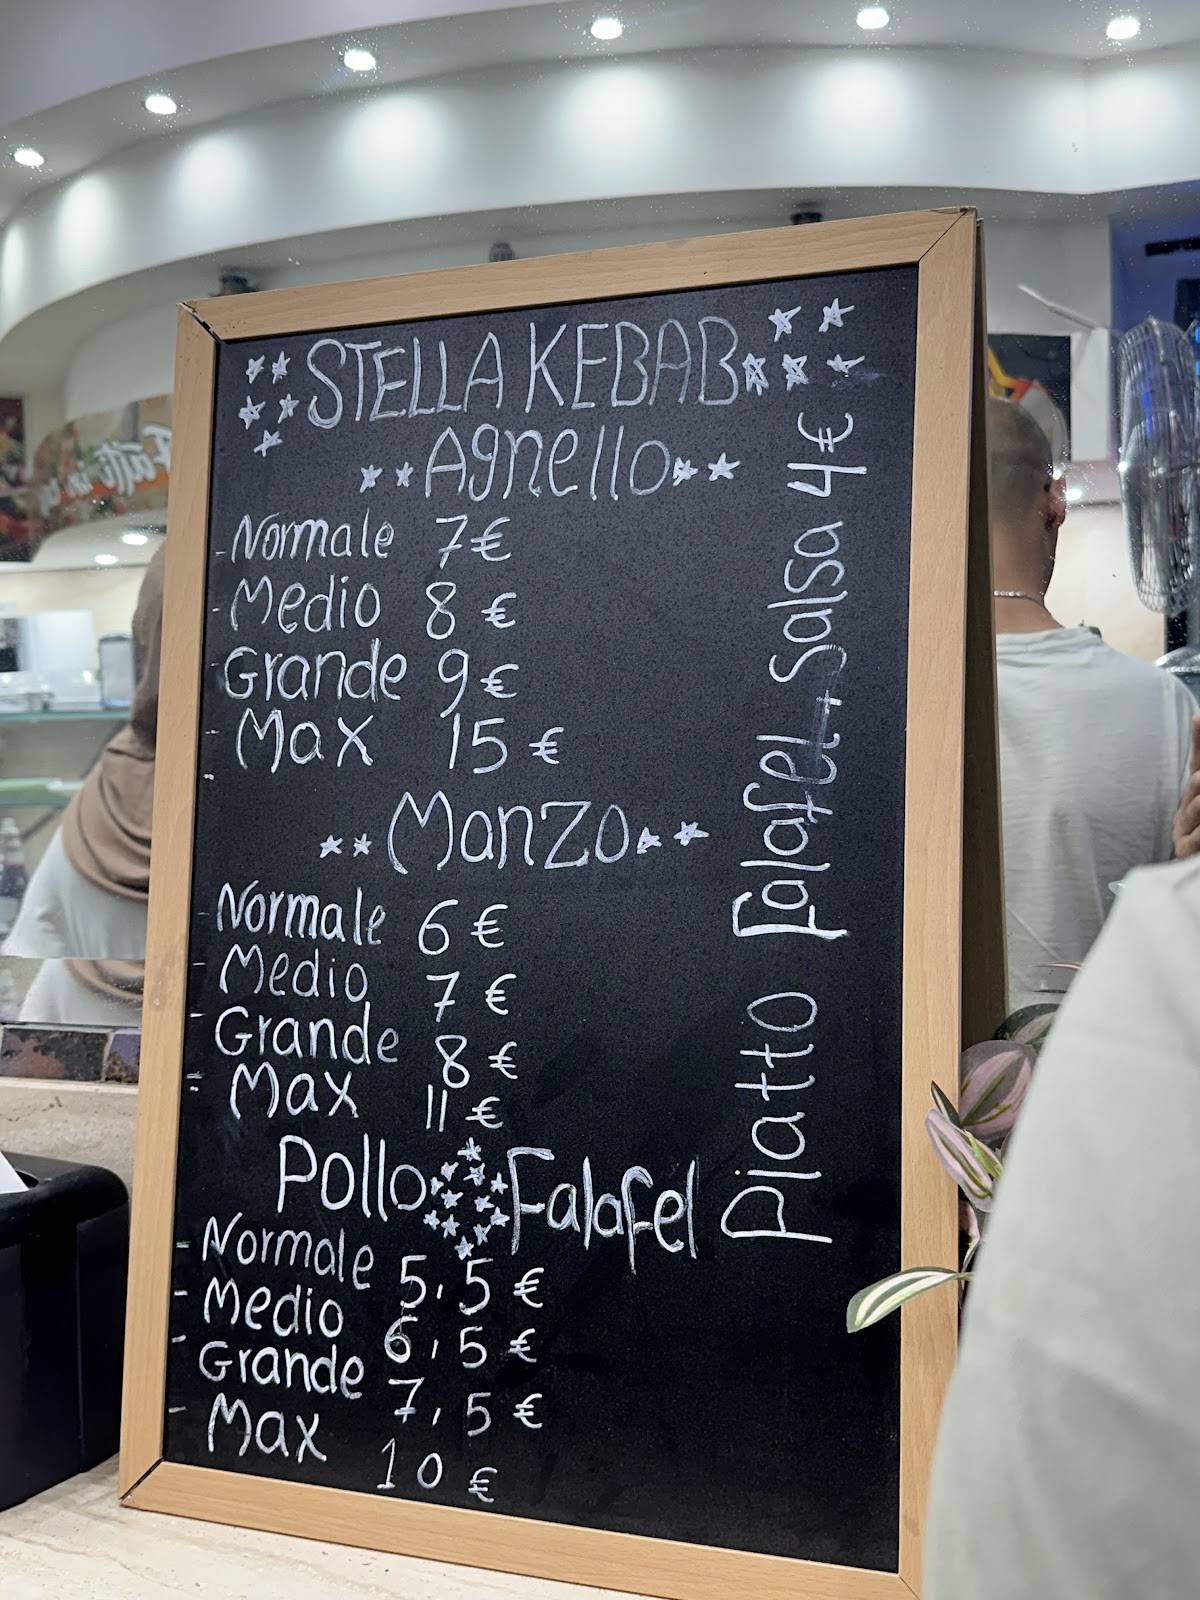 STELLA KEBAB
Agnello
- Normale 7€
- Medio 8 €
- Grande 9€
- Max 15 €
Manzo
- Normale 6 €
- Medio 7 €
- Grande 8 €
- Max 11 €
Pollo Falafel
- Normale 5,5 €
- Medio 6,5 €
- Grande 7,5 €
- Max 10 €
Piatto Falafel + Salsa 4€